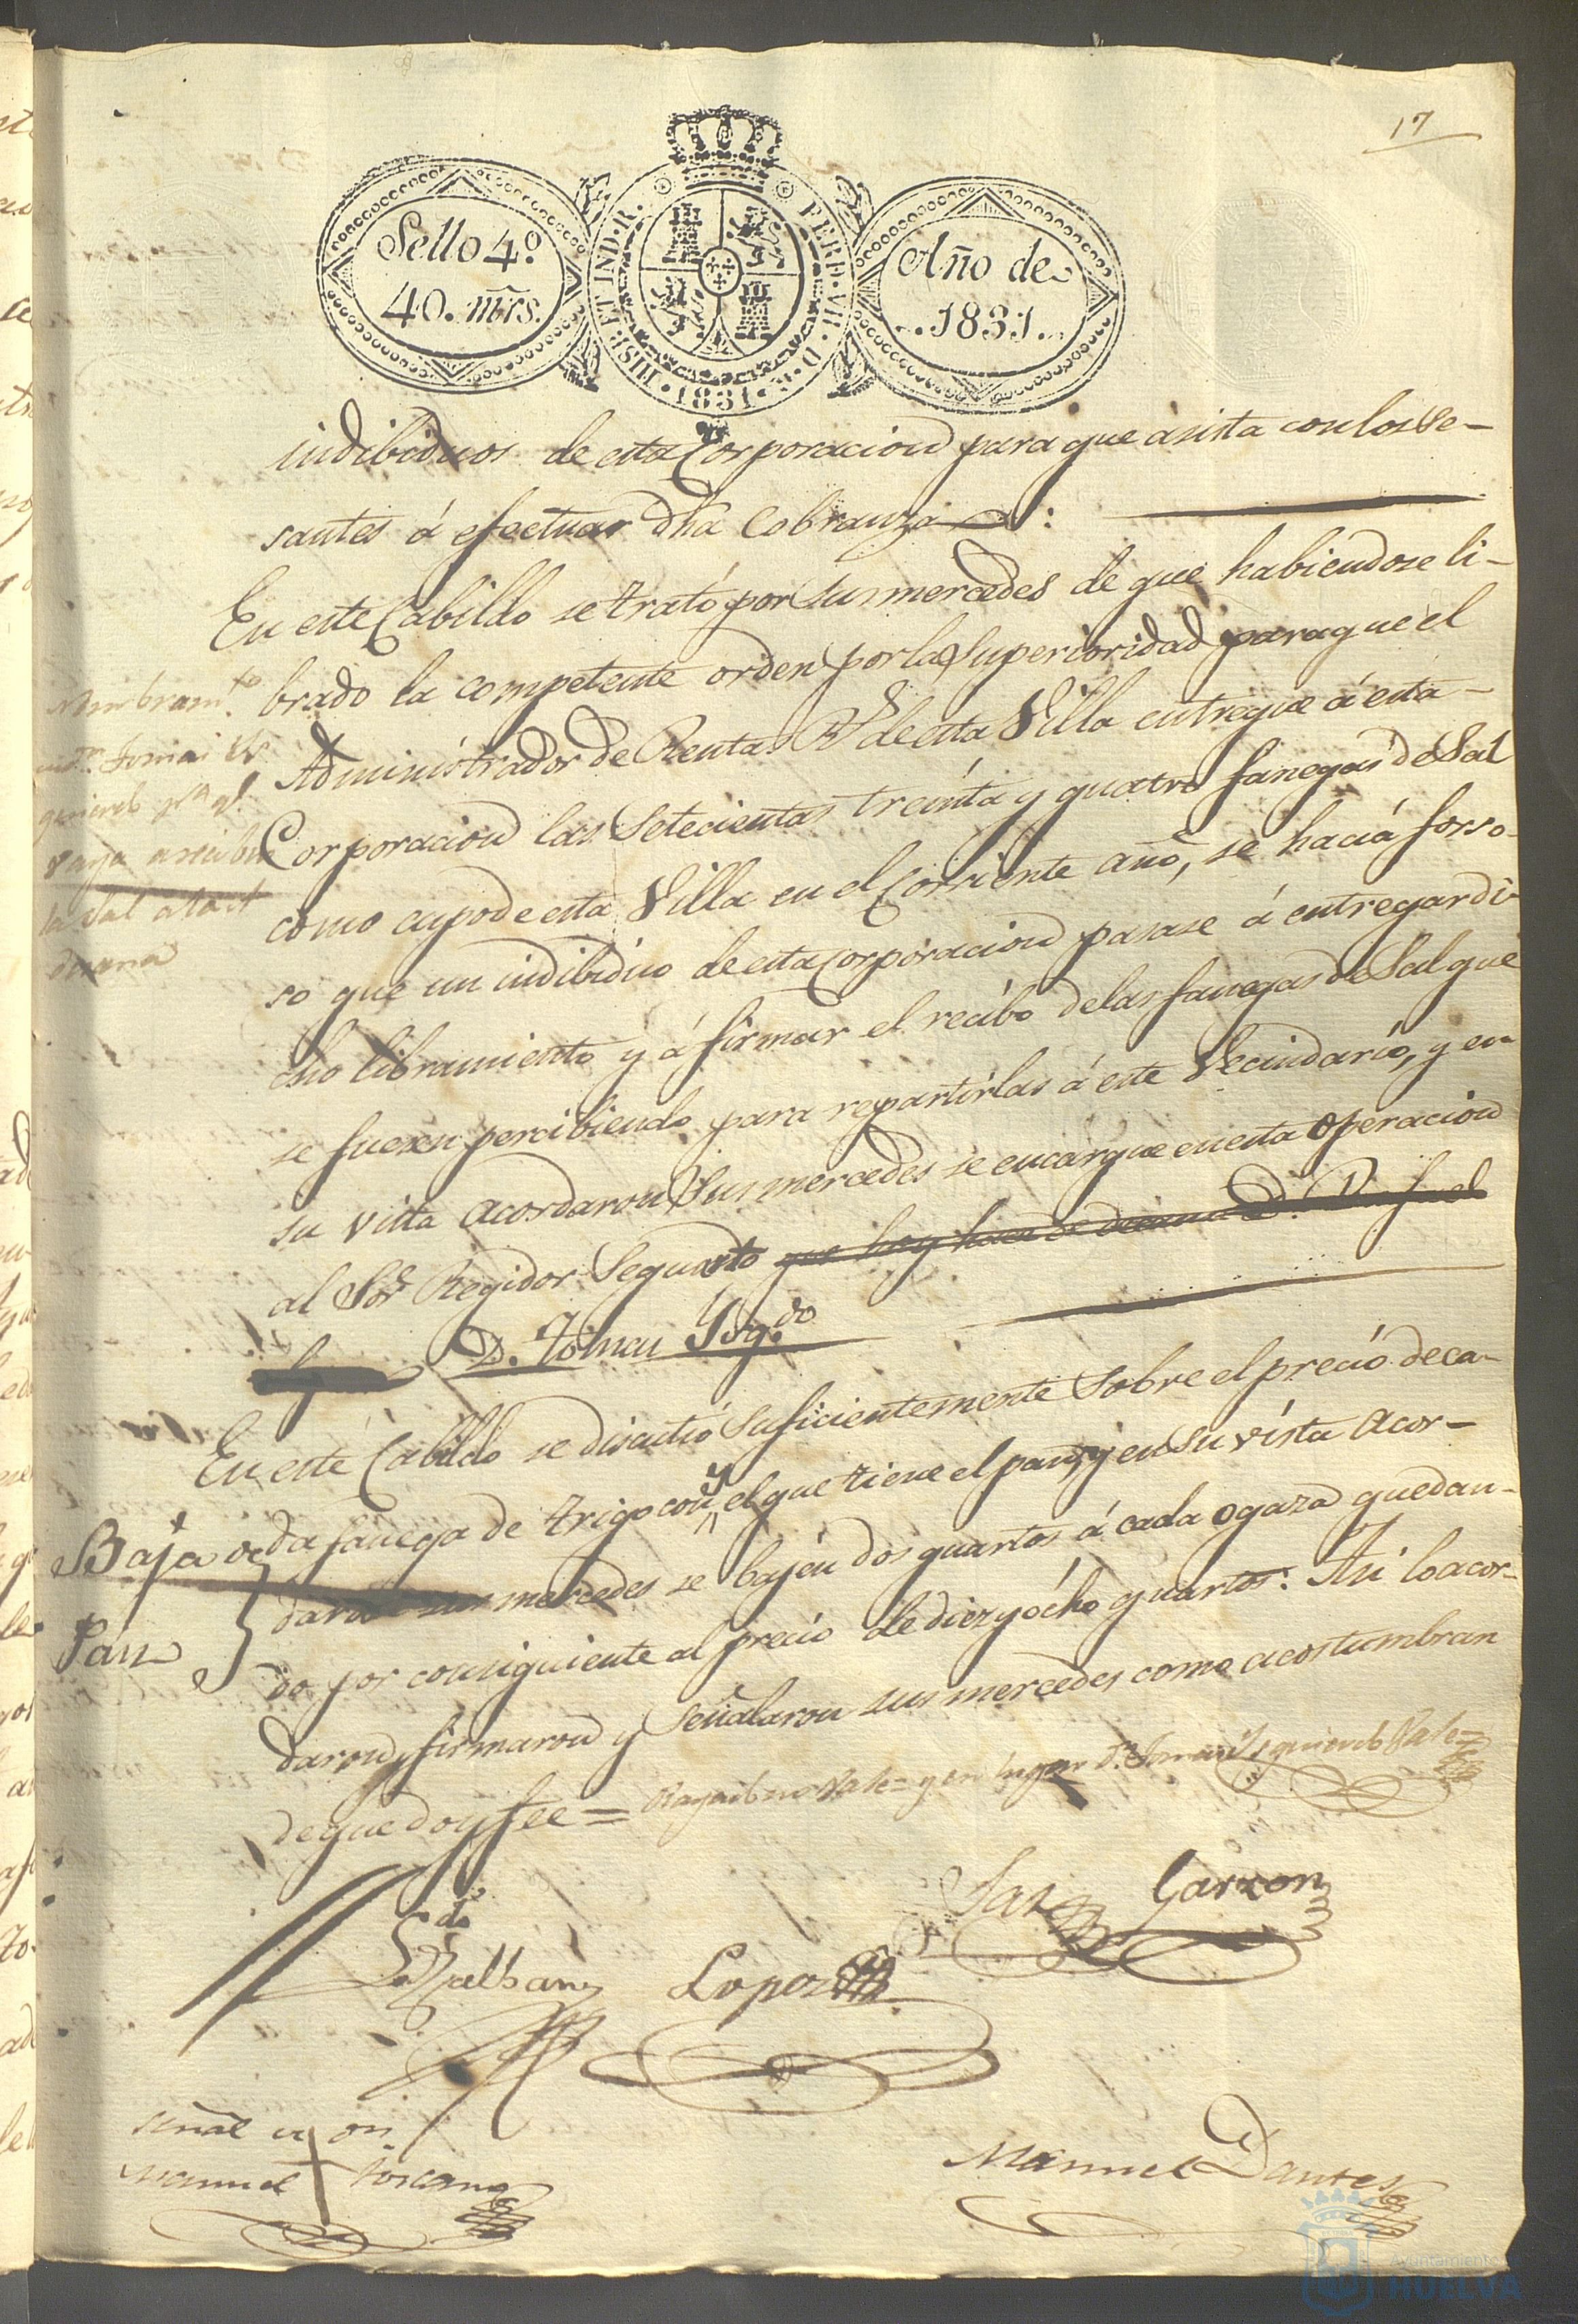 17
Sello 4.º
40. mrs.
HISP. ET IND. R. FERD. VII. D. G. 1831
Año de
1831
indibiduos de esta Corporacion para que asista con los Se-
santes á efectuar dha Cobranza:
En este Cabildo se trató por sus mercedes de que habiendose li-
brado la competente orden por la Superioridad para que el
Administrador de Rentas Rs. de esta Villa entregue á esta
Corporacion las Setecientas treinta y quatro fanegas de Sal
como cupo de esta Villa en el Corriente año, se hacia forso-
so que un indibiduo de esta Corporacion pasase á entregar di-
cho libramiento y á firmar el recibo de las fanegas de Sal que
se fuesen percibiendo para repartirlas á este Vecindario, y en
su vista acordaron sus mercedes se encargue en esta Operacion
al Sor. Regidor Segundo que hoy hace de decano D. Rafael
D. Tomas Yzq.do
Nombram.to
Tomas
p.ª q.e
vaya a recibir
la Sal a la
En este Cabildo se discutió suficientemente sobre el precio de ca-
da fanega de trigo con y el que tiene el pan, y en su vista acor-
daron sus mercedes se bajen dos quartos á cada ogaza quedan-
do por consiguiente al precio de diez y ocho quartos. Asi lo acor-
daron, firmaron y señalaron sus mercedes como acostumbran
de que doy fee =
Baja de
Pan
Rayado no Vale = y en lugar D.n Tomas Izquierdo Vale =
Saz Garzon
Ldo.
Lopez
señal de on
Manuel Toscano
Manuel Dantes
Ayuntamiento de
HUELVA